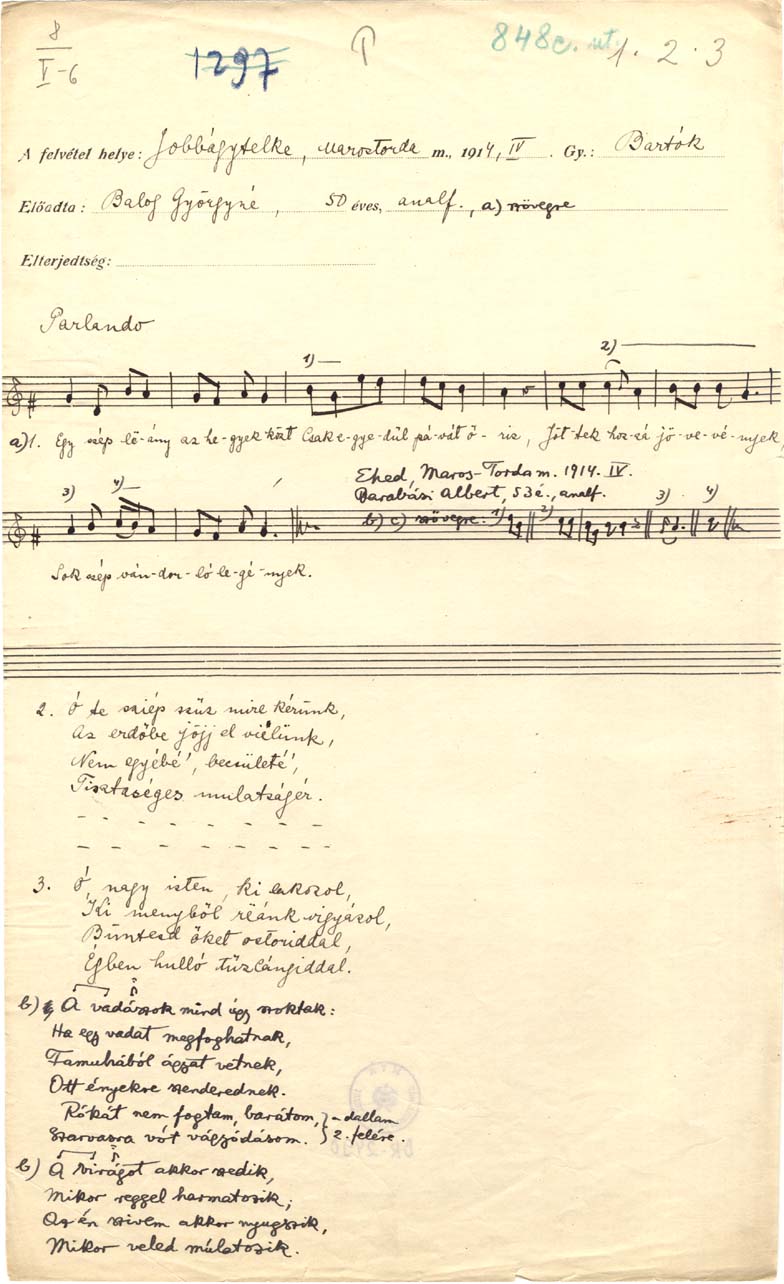 8
V-6
1297
848c. ut.
1. 2. 3
A felvétel helye: Jobbágytelke, Marostorda m., 1914, IV. Gy.: Bartók
Előadta: Balog Györgyné, 50 éves, analf., a) szövegre
Elterjedtség:
Parlando
1)
2)
a) 1. Egy szép lë-ány az he-gyek közt Csak e-gye-dül pá-vát ő-riz, Jöt-tek hoz-zá jö-ve-vé-nyek,
Ehed, Maros-Torda m. 1914. IV.
Barabási Albert, 53 é., analf.
3) 4) b) c) szövegre. 1) 2) 3) 4)
Sok szép ván-dor-ló le-gé-nyek.
2. Ó te sziép szüz mire kérünk,
Az erdőbe jöjj el viélünk,
Nem egyébé', becsületé',
Tisztaséges mulatságér.
3. Ó, nagy isten, ki lakozol,
Ki menyből rëánk vigyázol,
Büntesd őket ostoriddal,
Égben hulló tüzlángiddal.
b) A vadászok mind úgy szoktak:
Ha egy vadat megfoghatnak,
Famuhából ágyat vetnek,
Ott ényekre szenderednek.
Rókát nem fogtam, barátom, - dallam
Szarvasra vót vágzódásom. 2. felére.
b) A virágot akkor szedik,
Mikor reggel harmatozik;
Az én szivem akkor nyugszik,
Mikor veled múlatozik.